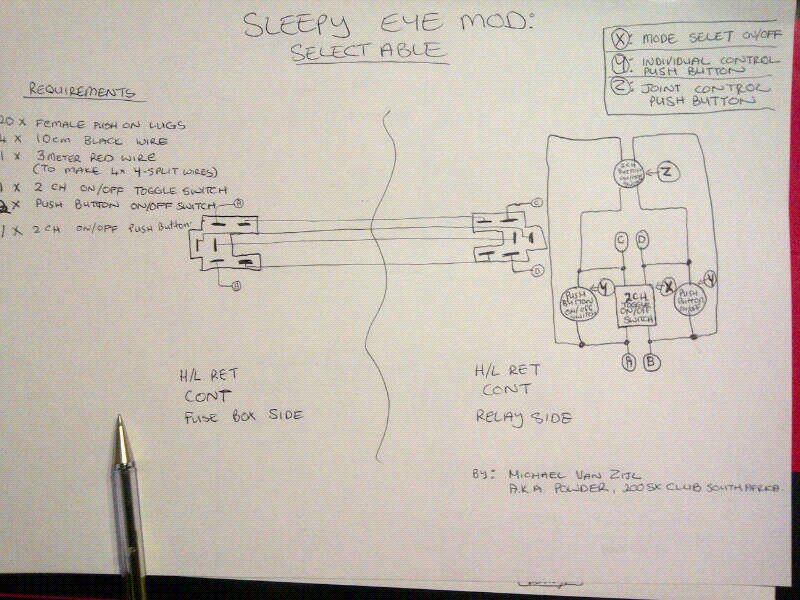 SLEEPY EYE MOD:
SELECTABLE
REQUIREMENTS
20 X FEMALE PUSH ON LUGS
4 X 10cm BLACK WIRE
1 X 3 METER RED WIRE
(TO MAKE 4X Y-SPLIT WIRES)
1 X 2 CH ON/OFF TOGGLE SWITCH
2 X PUSH BUTTON ON/OFF SWITCH
1 X 2 CH ON/OFF PUSH Button
X: MODE SELET ON/OFF
Y: INDIVIDUAL CONTROL
PUSH BUTTON
Z: JOINT CONTROL
PUSH BUTTON
2CH
BUTTON
ON/OFF
Z
C
C D
D
Y
X
Y
PUSH
BUTTON
ON/OFF
SWITCH
2CH
TOGGLE
ON/OFF
SWITCH
PUSH
BUTTON
A B
H/L RET
CONT
FUSE BOX SIDE
H/L RET
CONT
RELAY SIDE
By: MICHAEL VAN ZIJL
A.K.A. POWDER, 200SX CLUB SOUTH AFRICA.